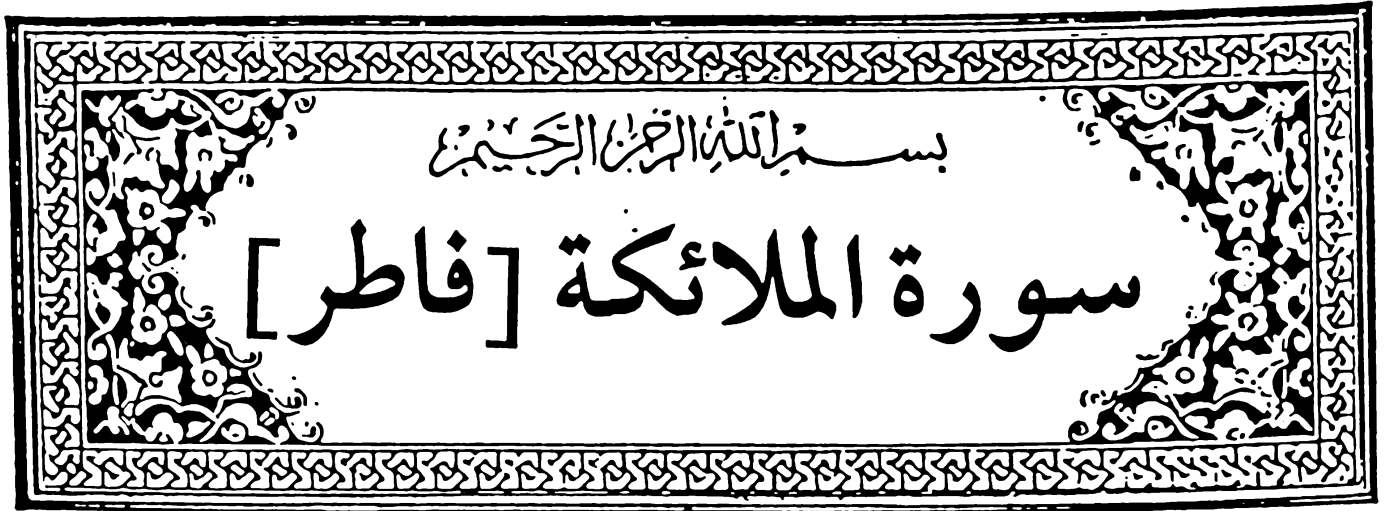 بسم الله الرحمن الرحيم
سورة الملائكة [فاطر]